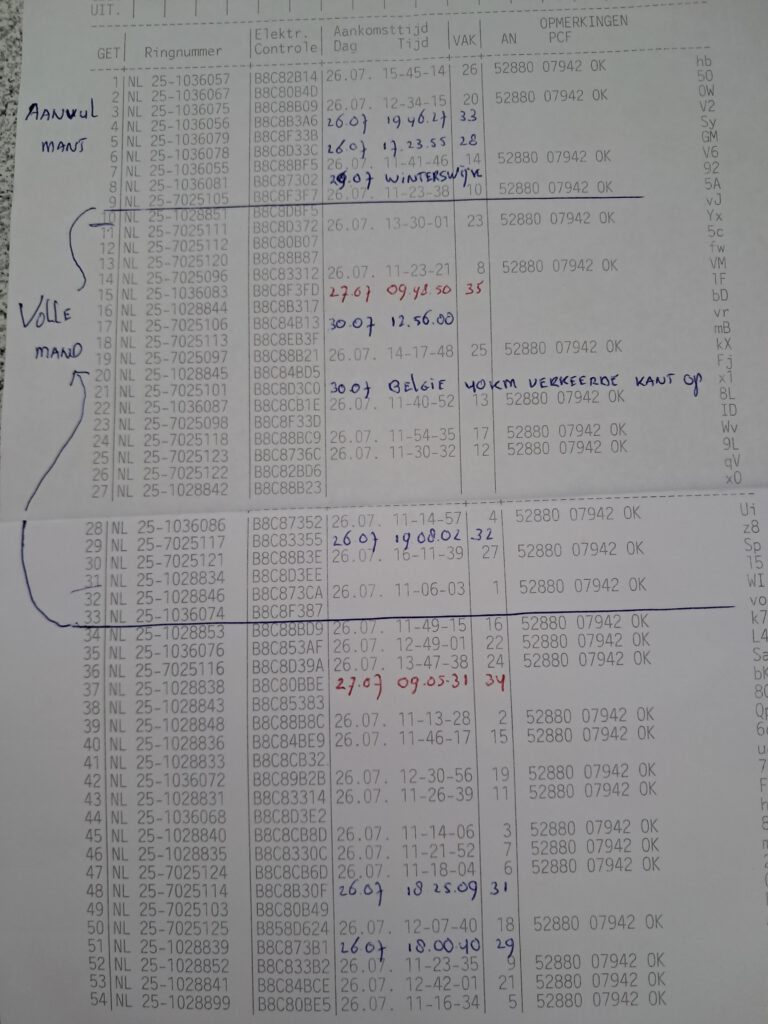 UIT.
GET Ringnummer Elektr. Controle Aankomsttijd Dag Tijd VAK OPMERKINGEN AN PCF
1 NL 25-1036057 B8C82B14 26.07. 15-45-14 26 52880 07942 OK hb
2 NL 25-1036067 B8C80B4D 50
3 NL 25-1036075 B8C88B09 26.07. 12-34-15 20 52880 07942 OK 0W
AANVUL
4 NL 25-1036056 B8C8B3A6 26.07 19 46.27 33 V2
5 NL 25-1036079 B8C8F33B Sy
MAND
6 NL 25-1036078 B8C8D33C 26.07 17.23.55 28 GM
7 NL 25-1036055 B8C88BF5 26.07. 11-41-46 14 52880 07942 OK V6
8 NL 25-1036081 B8C87302 29.07 WINTERSWIJK 92
9 NL 25-7025105 B8C8F3F7 26.07. 11-23-38 10 52880 07942 OK 5A
10 NL 25-1028851 B8C8DBF5 vJ
11 NL 25-7025111 B8C8D372 26.07. 13-30-01 23 52880 07942 OK Yx
12 NL 25-7025112 B8C80B07 5c
13 NL 25-7025120 B8C88B87 fw
14 NL 25-7025096 B8C83312 26.07. 11-23-21 8 52880 07942 OK VM
15 NL 25-1036083 B8C8F3FD 27.07 09.48.50 35 lF
16 NL 25-1028844 B8C8B317 bD
VOLLE
17 NL 25-7025106 B8C84B13 30.07 12.56.00 vr
18 NL 25-7025113 B8C8EB3F mB
MAND
19 NL 25-7025097 B8C88B21 26.07. 14-17-48 25 52880 07942 OK kX
20 NL 25-1028845 B8C84BD5 Fj
21 NL 25-7025101 B8C8D3C0 30.07 BELGIE 40KM VERKEERDE KANT OP x1
22 NL 25-1036087 B8C8CB1E 26.07. 11-40-52 13 52880 07942 OK 8L
23 NL 25-7025098 B8C8F33D ID
24 NL 25-7025118 B8C88BC9 26.07. 11-54-35 17 52880 07942 OK Wv
25 NL 25-7025123 B8C8736C 26.07. 11-30-32 12 52880 07942 OK 9L
26 NL 25-7025122 B8C82BD6 qV
27 NL 25-1028842 B8C88B23 x0
28 NL 25-1036086 B8C87352 26.07. 11-14-57 4 52880 07942 OK Ui
29 NL 25-7025117 B8C83355 26.07 19 08.02 32 z8
30 NL 25-7025121 B8C88B3E 26.07. 16-11-39 27 52880 07942 OK Sp
31 NL 25-1028834 B8C8D3EE 15
32 NL 25-1028846 B8C873CA 26.07. 11-06-03 1 52880 07942 OK WI
33 NL 25-1036074 B8C8F387 vo
34 NL 25-1028853 B8C88BD9 26.07. 11-49-15 16 52880 07942 OK k7
35 NL 25-1036076 B8C853AF 26.07. 12-49-01 22 52880 07942 OK L4
36 NL 25-7025116 B8C8D39A 26.07. 13-47-38 24 52880 07942 OK Sa
37 NL 25-1028838 B8C80BBE 27.07 09.05.31 34 bK
38 NL 25-1028843 B8C85383 80
39 NL 25-1028848 B8C88B8C 26.07. 11-13-28 2 52880 07942 OK Qp
40 NL 25-1028836 B8C84BE9 26.07. 11-46-17 15 52880 07942 OK
41 NL 25-1028833 B8C8CB32
42 NL 25-1036072 B8C89B2B 26.07. 12-30-56 19 52880 07942 OK
43 NL 25-1028831 B8C83314 26.07. 11-26-39 11 52880 07942 OK
44 NL 25-1036068 B8C8D3E2
45 NL 25-1028840 B8C8CB8D 26.07. 11-14-06 3 52880 07942 OK
46 NL 25-1028835 B8C8330C 26.07. 11-21-52 7 52880 07942 OK
47 NL 25-7025124 B8C8CB6D 26.07. 11-18-04 6 52880 07942 OK
48 NL 25-7025114 B8C8B30F 26.07 18 25.09 31
49 NL 25-7025103 B8C80B49
50 NL 25-7025125 B858D624 26.07. 12-07-40 18 52880 07942 OK
51 NL 25-1028839 B8C873B1 26.07 18.00 40 29
52 NL 25-1028852 B8C833B2 26.07. 11-23-35 9 52880 07942 OK
53 NL 25-1028841 B8C84BCE 26.07. 12-42-01 21 52880 07942 OK
54 NL 25-1028899 B8C80BE5 26.07. 11-16-34 5 52880 07942 OK